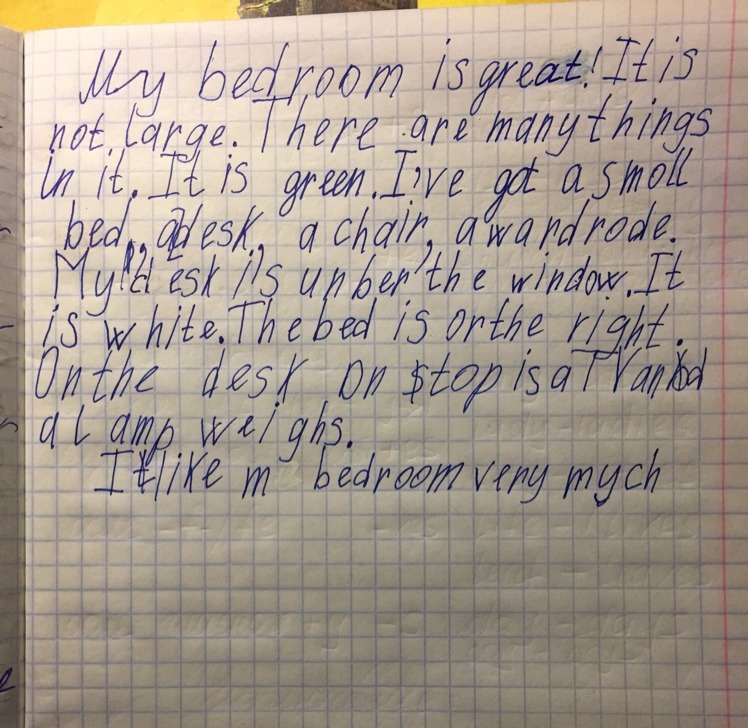 My bedroom is great! It is
not large. There are many things
in it. It is green. I've got a smoll
bed, a desk, a chair, a wardrode.
My desk is unber the window. It
is white. The bed is or the right.
On the desk on $top is a TV and
a lamp weighs.
I like m bedroom very mych